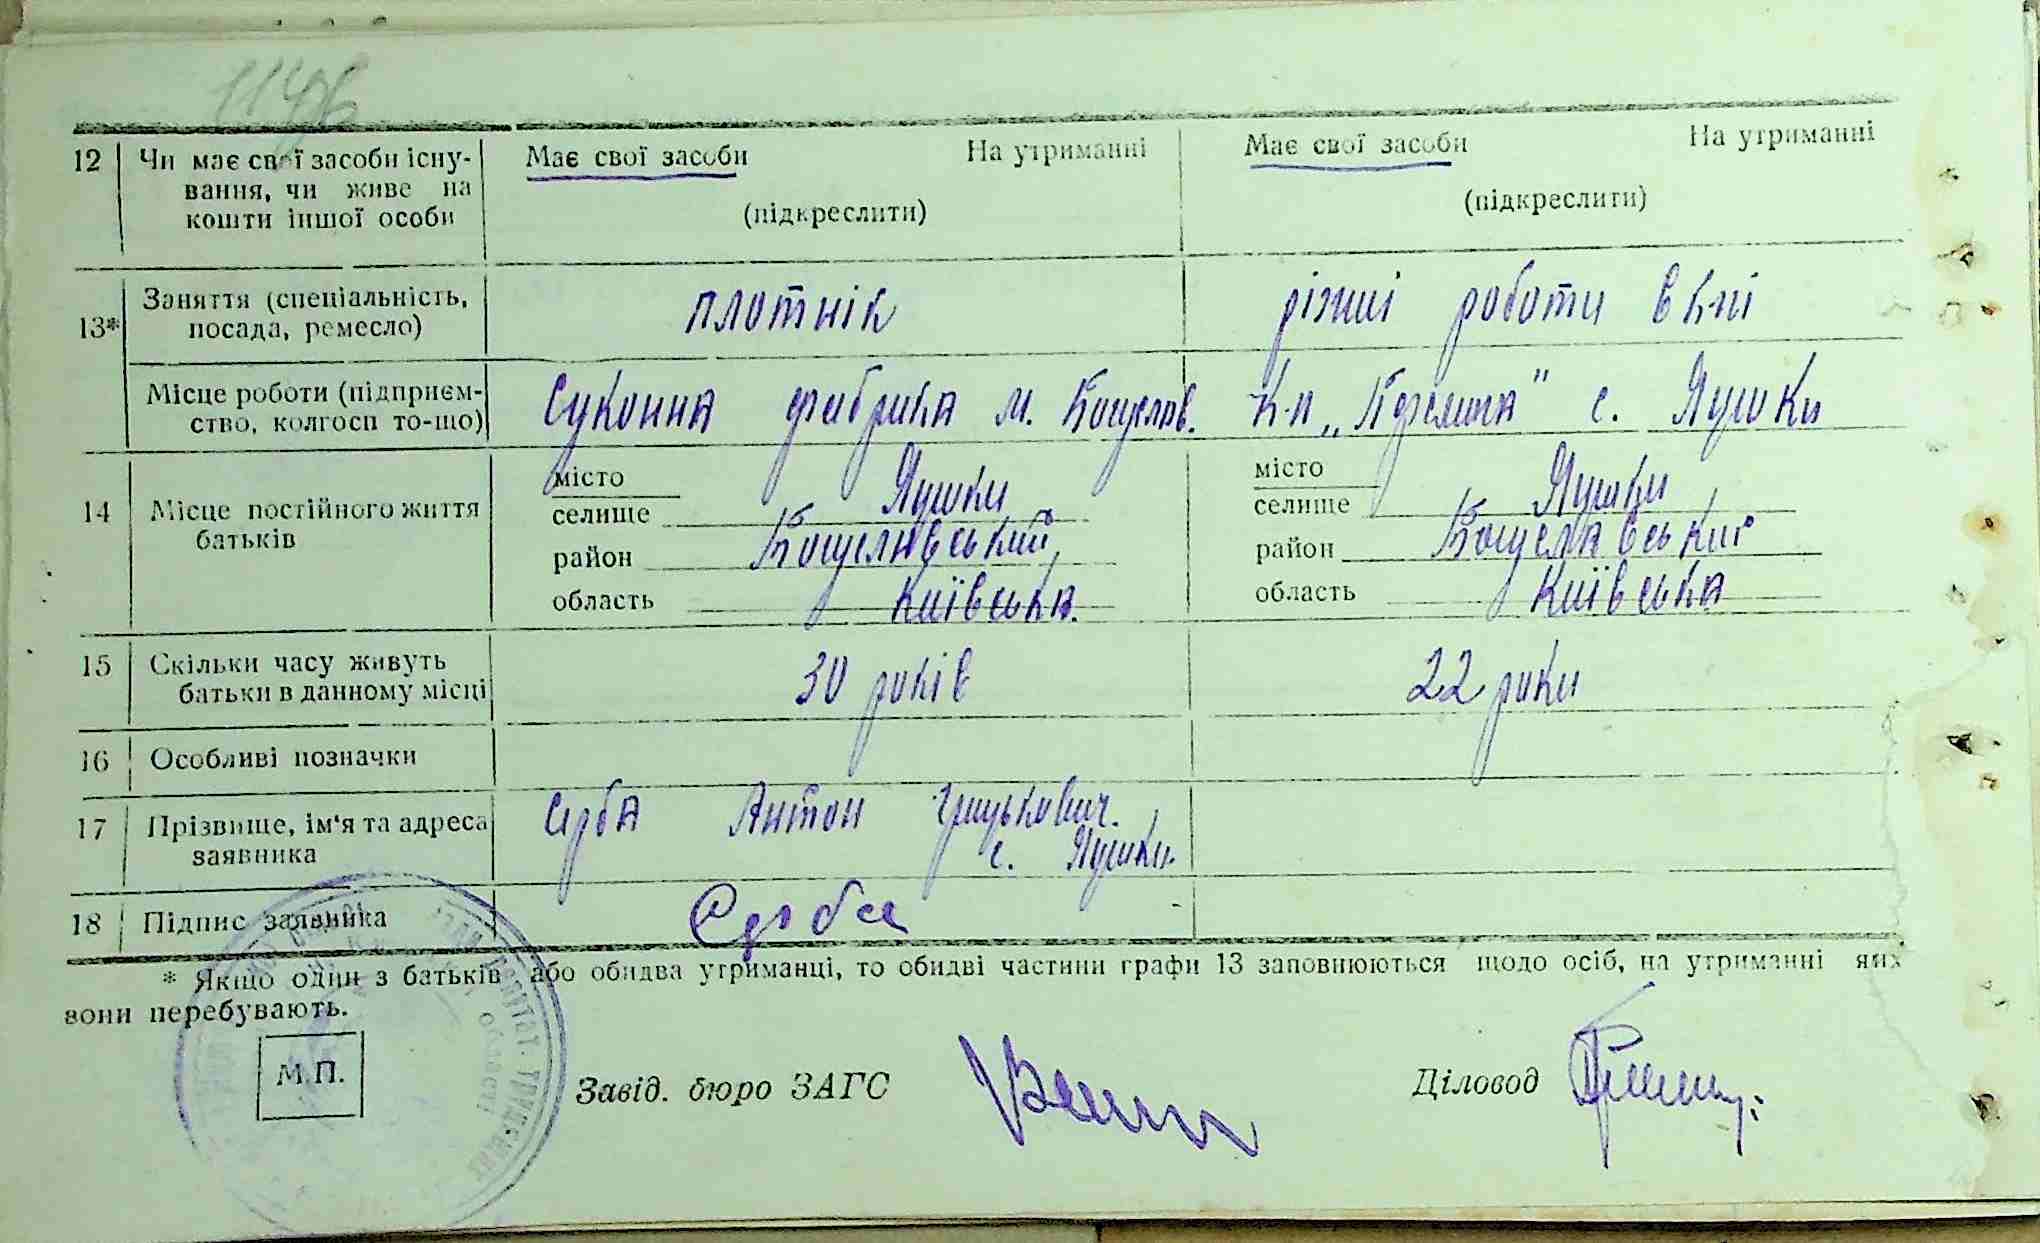 12 Чи має свої засоби існу-
вання, чи живе на
кошти іншої особи
Має свої засоби На утриманні
(підкреслити)
Має свої засоби На утриманні
(підкреслити)
13* Заняття (спеціальність,
посада, ремесло)
плотнік
ріжні роботи в к-пі
Місце роботи (підприєм-
ство, колгосп то-що)
Суконна фабрика м. Богуслав.
К-п „ " с. Яцюки
14 Місце постійного життя
батьків
місто
селище Яцюки
район Богуславський
область Київська.
місто
селище Яцюки
район Богуславський
область Київська
15 Скільки часу живуть
батьки в данному місці
30 років
22 роки
16 Особливі позначки
17 Прізвище, ім'я та адреса
заявника
Серба Антон Грицькович.
с. Яцюки.
18 Підпис заявника
Серба
* Якщо один з батьків або обидва утриманці, то обидві частини графи 13 заповнюються щодо осіб, на утриманні яких
вони перебувають.
М.П.
Завід. бюро ЗАГС
Діловод